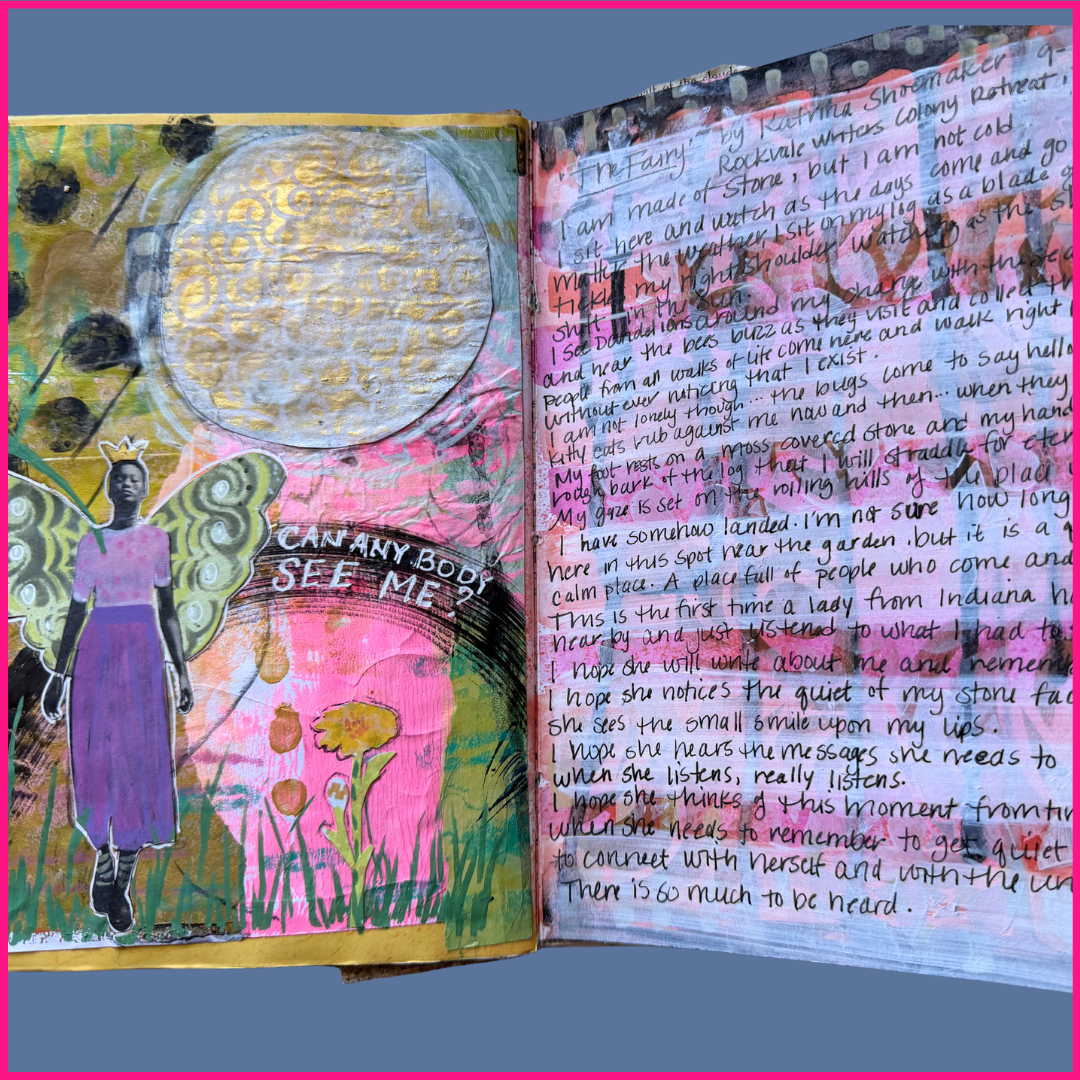 CAN ANYBODY
SEE ME?
"The Fairy" by Katrina Shoemaker 9-
Rockvale Writers Colony Retreat,
I am made of stone, but I am not cold.
I sit here and watch as the days come and go
matter the weather. I sit on my log as a blade
tickles my right shoulder watching as the
shift in the sun.
I see Dandelions around my
and hear the bees buzz as they visit and collect
People from all walks of life come here and walk right
without ever noticing that I exist.
I am not lonely though... the bugs come to say hello
Kitty cats rub against me now and then... when they
My foot rests on a moss covered stone and my hand
rough bark of the log that I will straddle for
My gaze is set on the rolling hills of the place
I have somehow landed. I'm not sure how long
here in this spot near the garden. but it is a
calm place. A place full of people who come and
This is the first time a lady from Indiana
near by and just listened to what I had to
I hope she will write about me and
I hope she notices the quiet of my stone
she sees the small smile upon my lips.
I hope she hears the messages she needs to
when she listens, really listens.
I hope she thinks of this moment from
when she needs to remember to get quiet
to connect with herself and with the
There is so much to be heard.